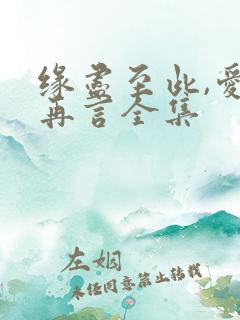 缘尽至此,爱
再言全集
左姻
未经同意禁止转载